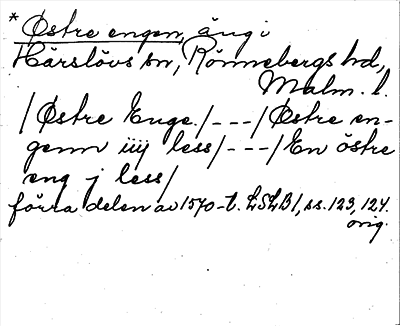 * Østre engen, äng i
Härslövs sn, Rönnebergs hd,
Malm. l.
/Østre Enge/---/Østre en-
genn iiij less/---/En östre
eng j less/
förra delen av 1570-t. LSLB1, ss. 123, 124.
orig.